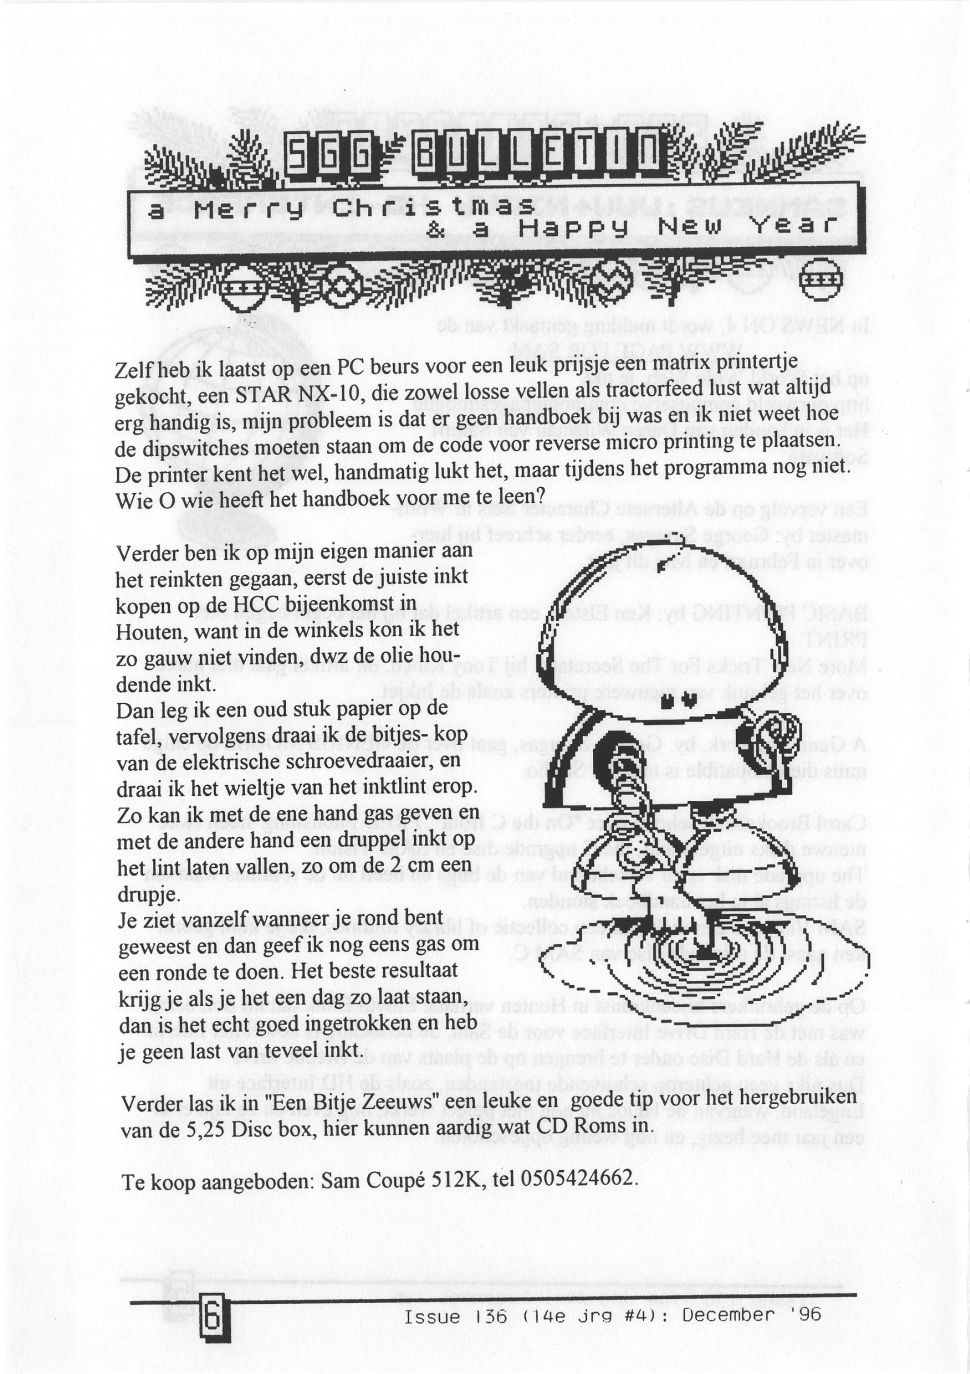 SGG BULLETIN
a Merry Christmas
& a Happy New Year
Zelf heb ik laatst op een PC beurs voor een leuk prijsje een matrix printertje
gekocht, een STAR NX-10, die zowel losse vellen als tractorfeed lust wat altijd
erg handig is, mijn probleem is dat er geen handboek bij was en ik niet weet hoe
de dipswitches moeten staan om de code voor reverse micro printing te plaatsen.
De printer kent het wel, handmatig lukt het, maar tijdens het programma nog niet.
Wie O wie heeft het handboek voor me te leen?
Verder ben ik op mijn eigen manier aan
het reinkten gegaan, eerst de juiste inkt
kopen op de HCC bijeenkomst in
Houten, want in de winkels kon ik het
zo gauw niet vinden, dwz de olie hou-
dende inkt.
Dan leg ik een oud stuk papier op de
tafel, vervolgens draai ik de bitjes- kop
van de elektrische schroevedraaier, en
draai ik het wieltje van het inktlint erop.
Zo kan ik met de ene hand gas geven en
met de andere hand een druppel inkt op
het lint laten vallen, zo om de 2 cm een
drupje.
Je ziet vanzelf wanneer je rond bent
geweest en dan geef ik nog eens gas om
een ronde te doen. Het beste resultaat
krijg je als je het een dag zo laat staan,
dan is het echt goed ingetrokken en heb
je geen last van teveel inkt.
Verder las ik in "Een Bitje Zeeuws" een leuke en goede tip voor het hergebruiken
van de 5,25 Disc box, hier kunnen aardig wat CD Roms in.
Te koop aangeboden: Sam Coupé 512K, tel 0505424662.
6
Issue 136 (14e jrg #4): December '96